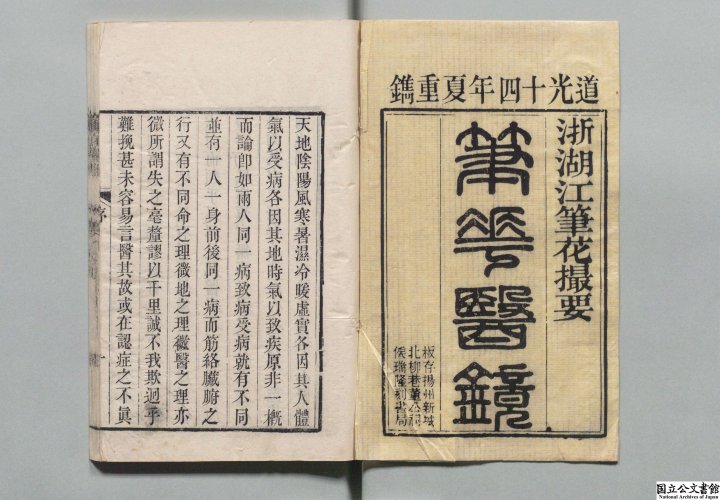 道光十四年夏重鐫
浙湖江筆花撮要
筆花醫鏡
板存揚州新城
北柳巷董公祠
侯瑞隆刻書局
天地陰陽風寒暑濕冷暖虛實各因其人體
氣以受病各因其地時氣以致疾原非一概
而論卽如兩人同一病致病受病就有不同
並有一人一身前後同一病而筋絡臟腑之
行又有不同命之理微地之理微醫之理亦
微所謂失之毫釐謬以千里誠不我欺廻乎
難挽甚未容易言醫其故或在認症之不眞
序
国立公文書館
National Archives of Japan